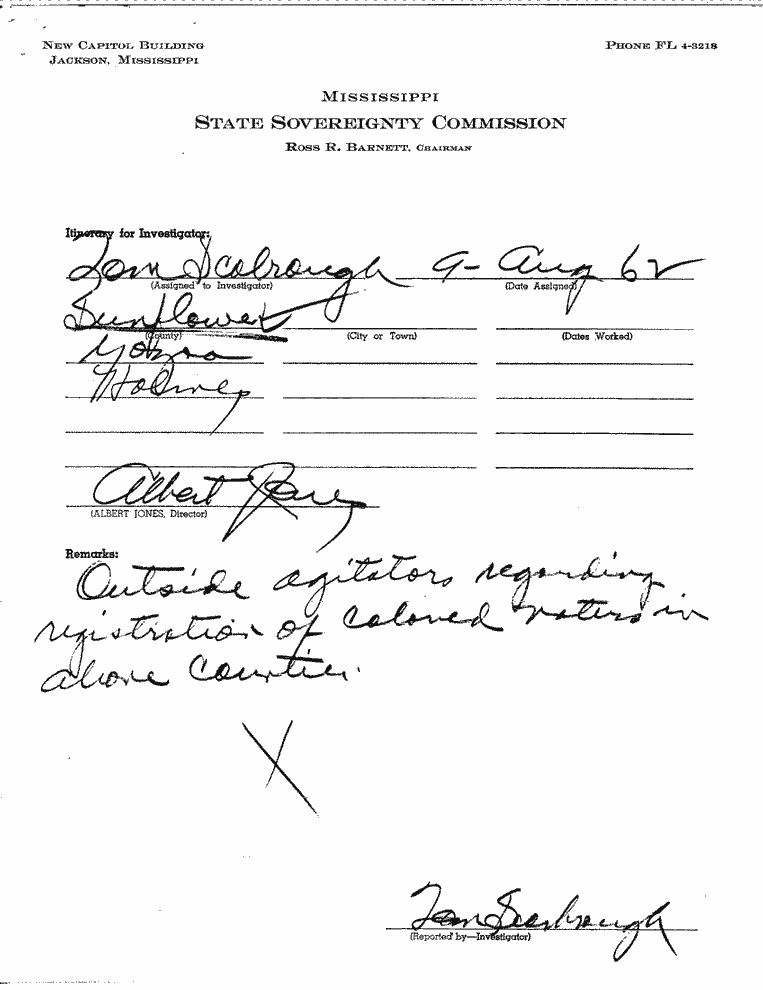 NEW CAPITOL BUILDING
JACKSON, MISSISSIPPI
PHONE FL 4-3218
MISSISSIPPI
STATE SOVEREIGNTY COMMISSION
ROSS R. BARNETT, CHAIRMAN
Itinerary for Investigator:
Tom Scabrough 9- Aug 62
(Assigned to Investigator) (Date Assigned)
Sunflower
(County) (City or Town) (Dates Worked)
Yazoo
Holmes
Albert Jones
(ALBERT JONES, Director)
Remarks:
Outside agitators regarding
registration of colored voters in
above Counties.
X
Tom Scarbrough
(Reported by—Investigator)